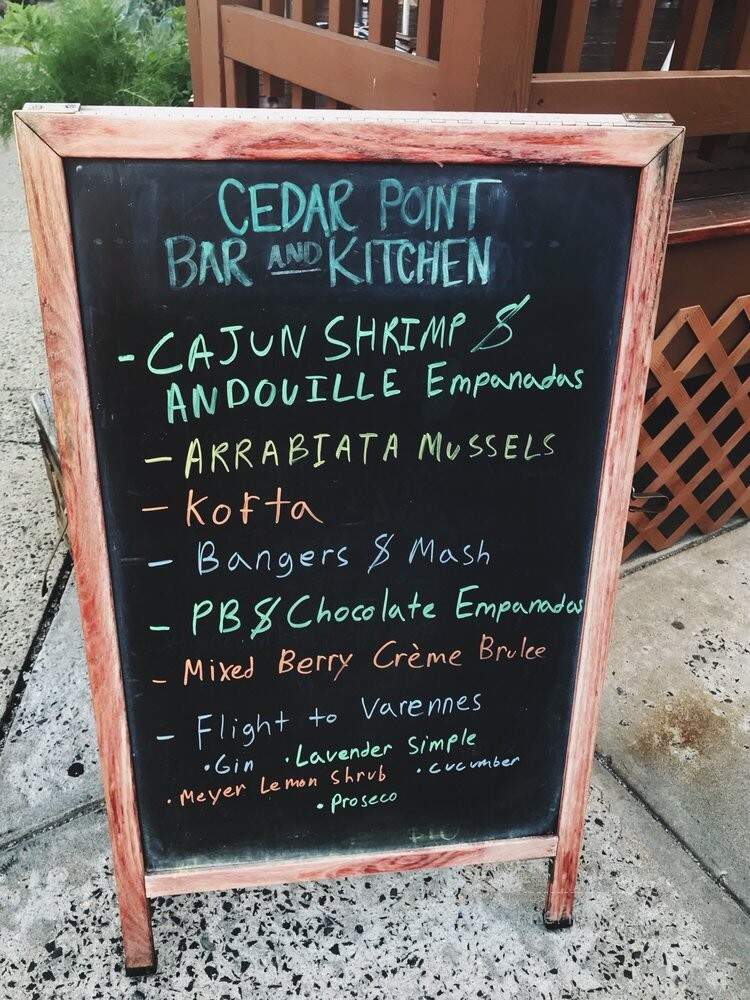 CEDAR POINT
BAR AND KITCHEN
- CAJUN SHRIMP &
ANDOUILLE Empanadas
- ARRABIATA MUSSELS
- Kofta
- Bangers & Mash
- PB & Chocolate Empanadas
- Mixed Berry Crème Brulee
- Flight to Varennes
• Gin • Lavender Simple
• Meyer Lemon Shrub • Cucumber
• Proseco